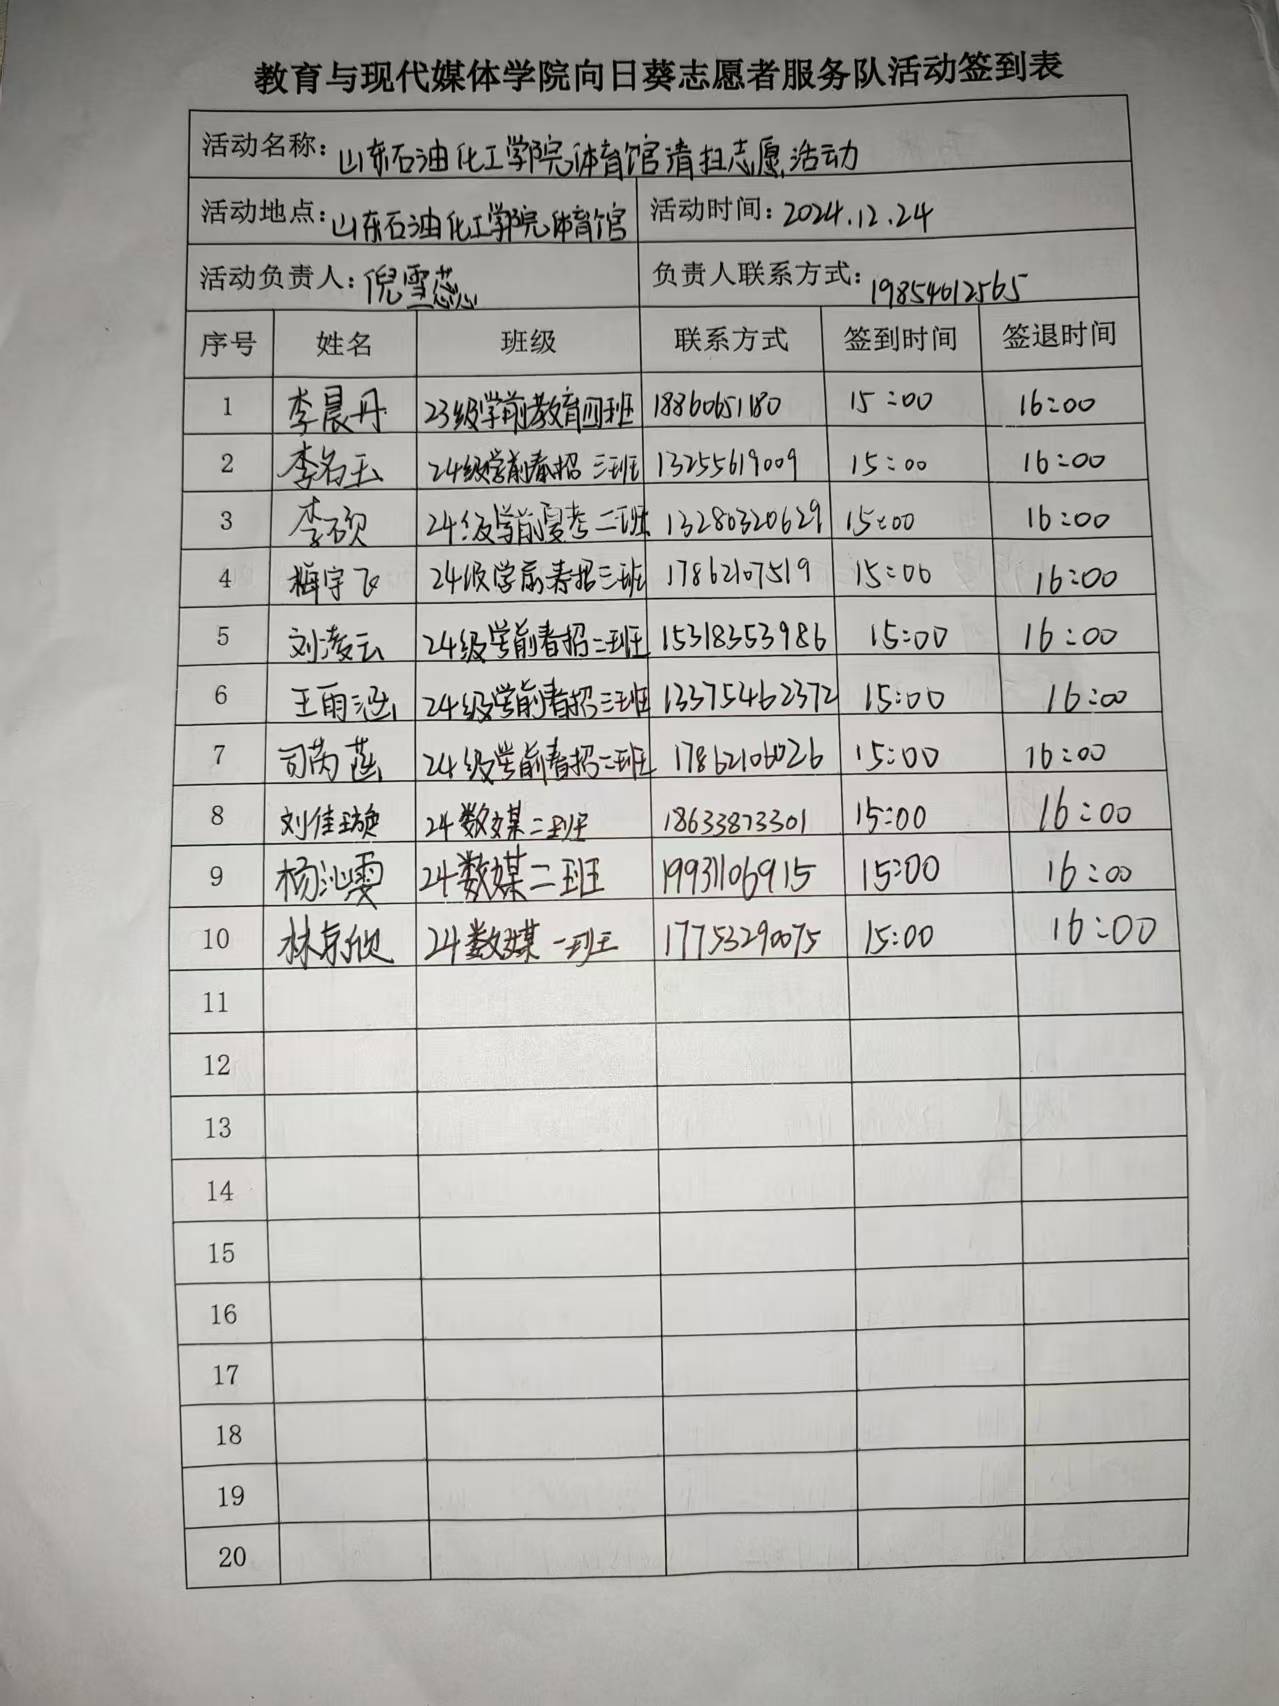 教育与现代媒体学院向日葵志愿者服务队活动签到表
活动名称：山东石油化工学院体育馆清扫志愿活动
活动地点：山东石油化工学院体育馆 活动时间：2024.12.24
活动负责人：倪雪蕊 负责人联系方式：19854612565
序号 姓名 班级 联系方式 签到时间 签退时间
1 李晨丹 23级学前教育四班 18860651180 15:00 16:00
2 李名玉 24级学前春招三班 13255619009 15:00 16:00
3 李硕 24级学前夏考二班 13280320629 15:00 16:00
4 梅宇飞 24级学前春招三班 17862107519 15:00 16:00
5 刘凌云 24级学前春招二班 15318353986 15:00 16:00
6 王雨涵 24级学前春招三班 13375462372 15:00 16:00
7 司芮菡 24级学前春招二班 17862106026 15:00 16:00
8 刘佳璇 24数媒二班 18633873301 15:00 16:00
9 杨沁雯 24数媒二班 19931106915 15:00 16:00
10 林京欣 24数媒一班 17753290075 15:00 16:00
11
12
13
14
15
16
17
18
19
20